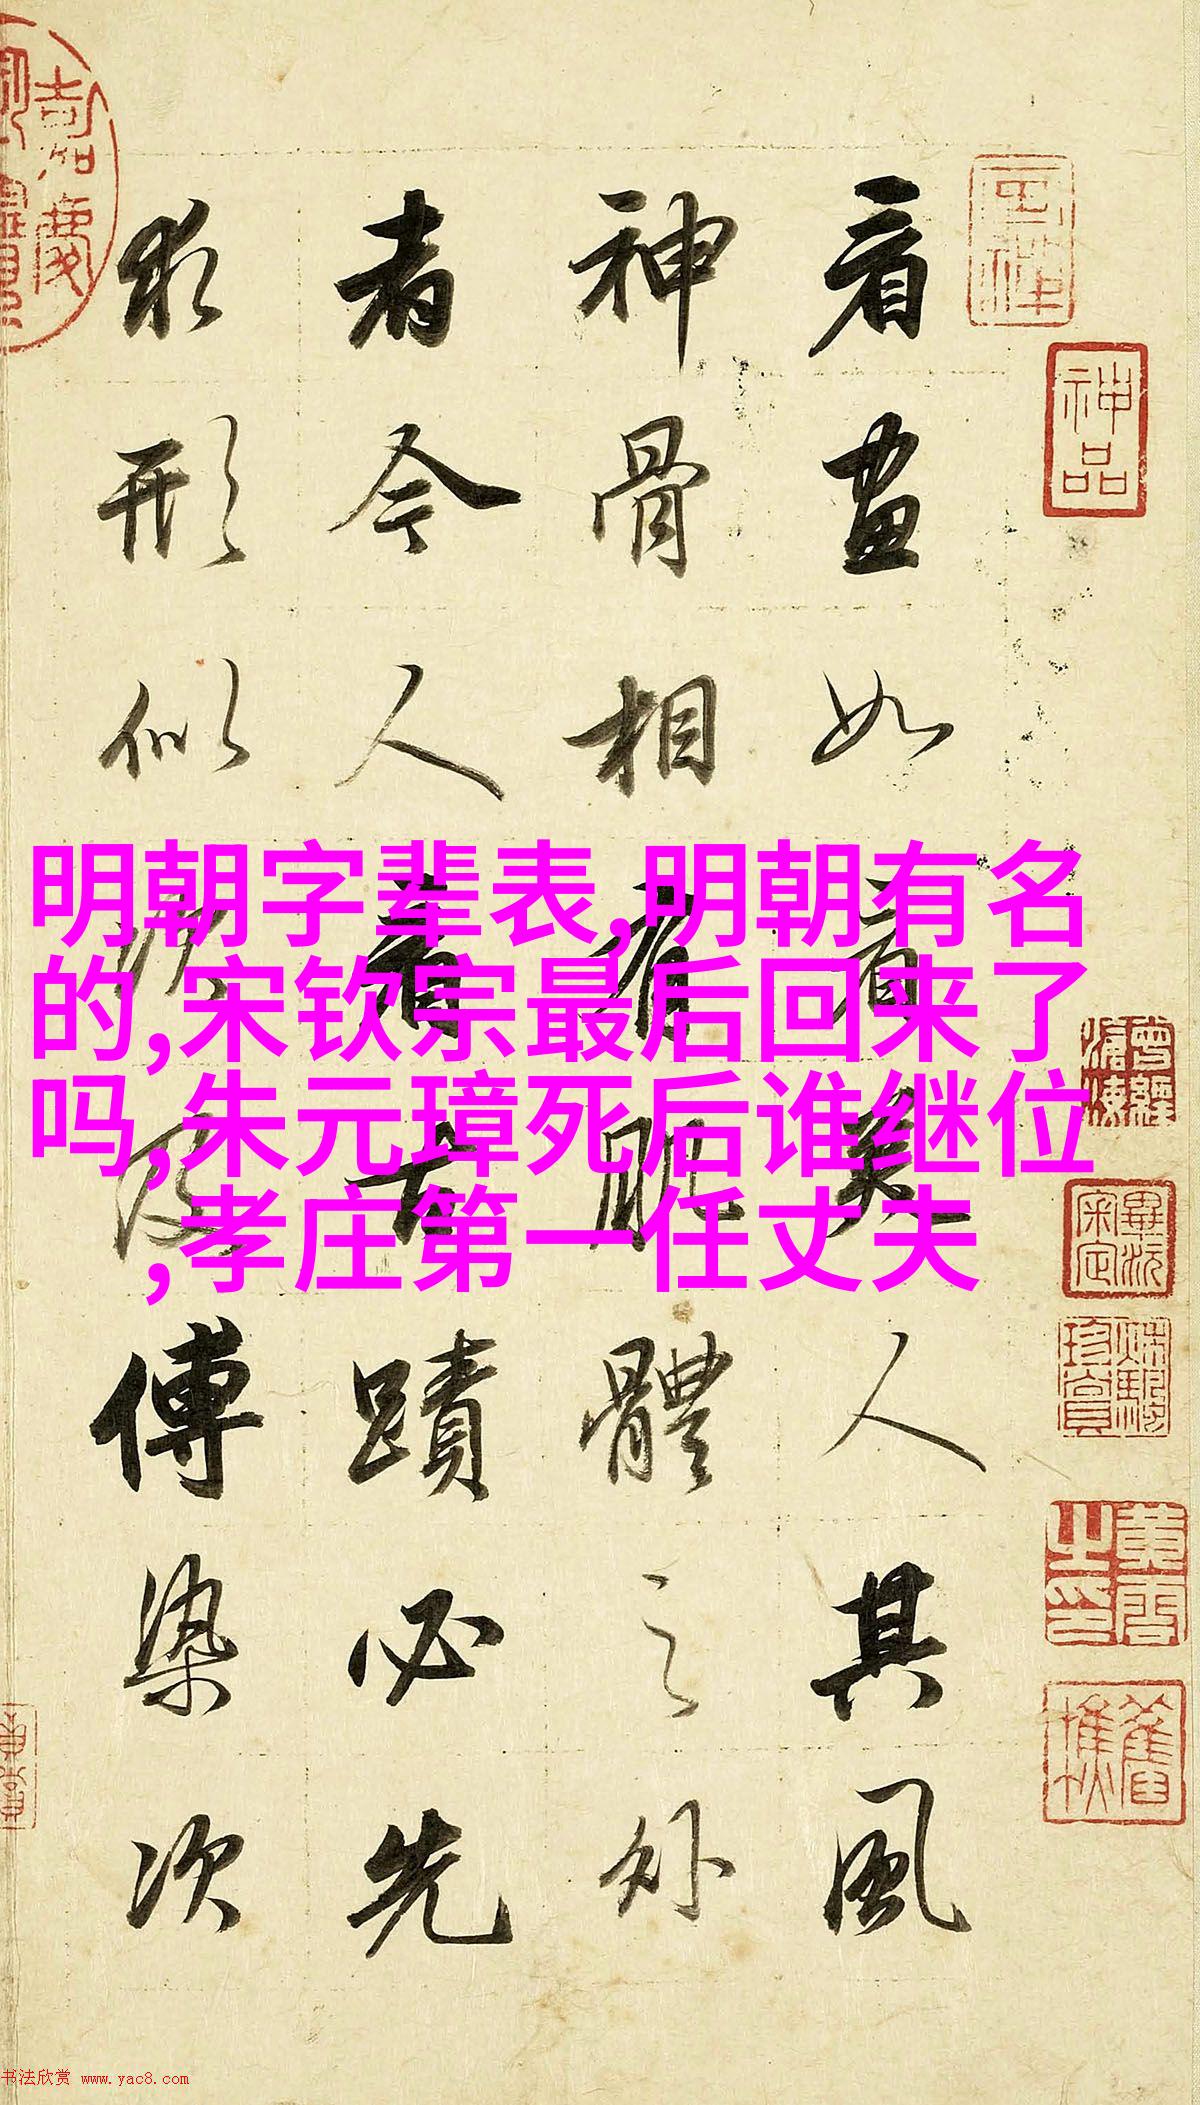 明朝字辈表,明朝有名
的,宋钦宗最后回来了
吗,朱元璋死后谁继位
,孝庄第一任丈夫
看畫如看美人其風
神骨相有肌體之外
者今人看古蹟必先
求形似次及傅染次
神品
书法欣赏 www.yac8.com